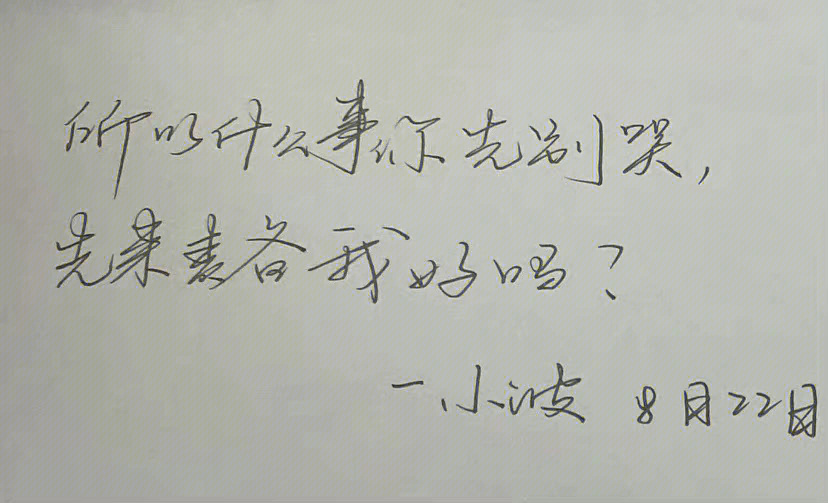 所以什么事你先别哭,
先来责备我好吗?
—小波 8月22日